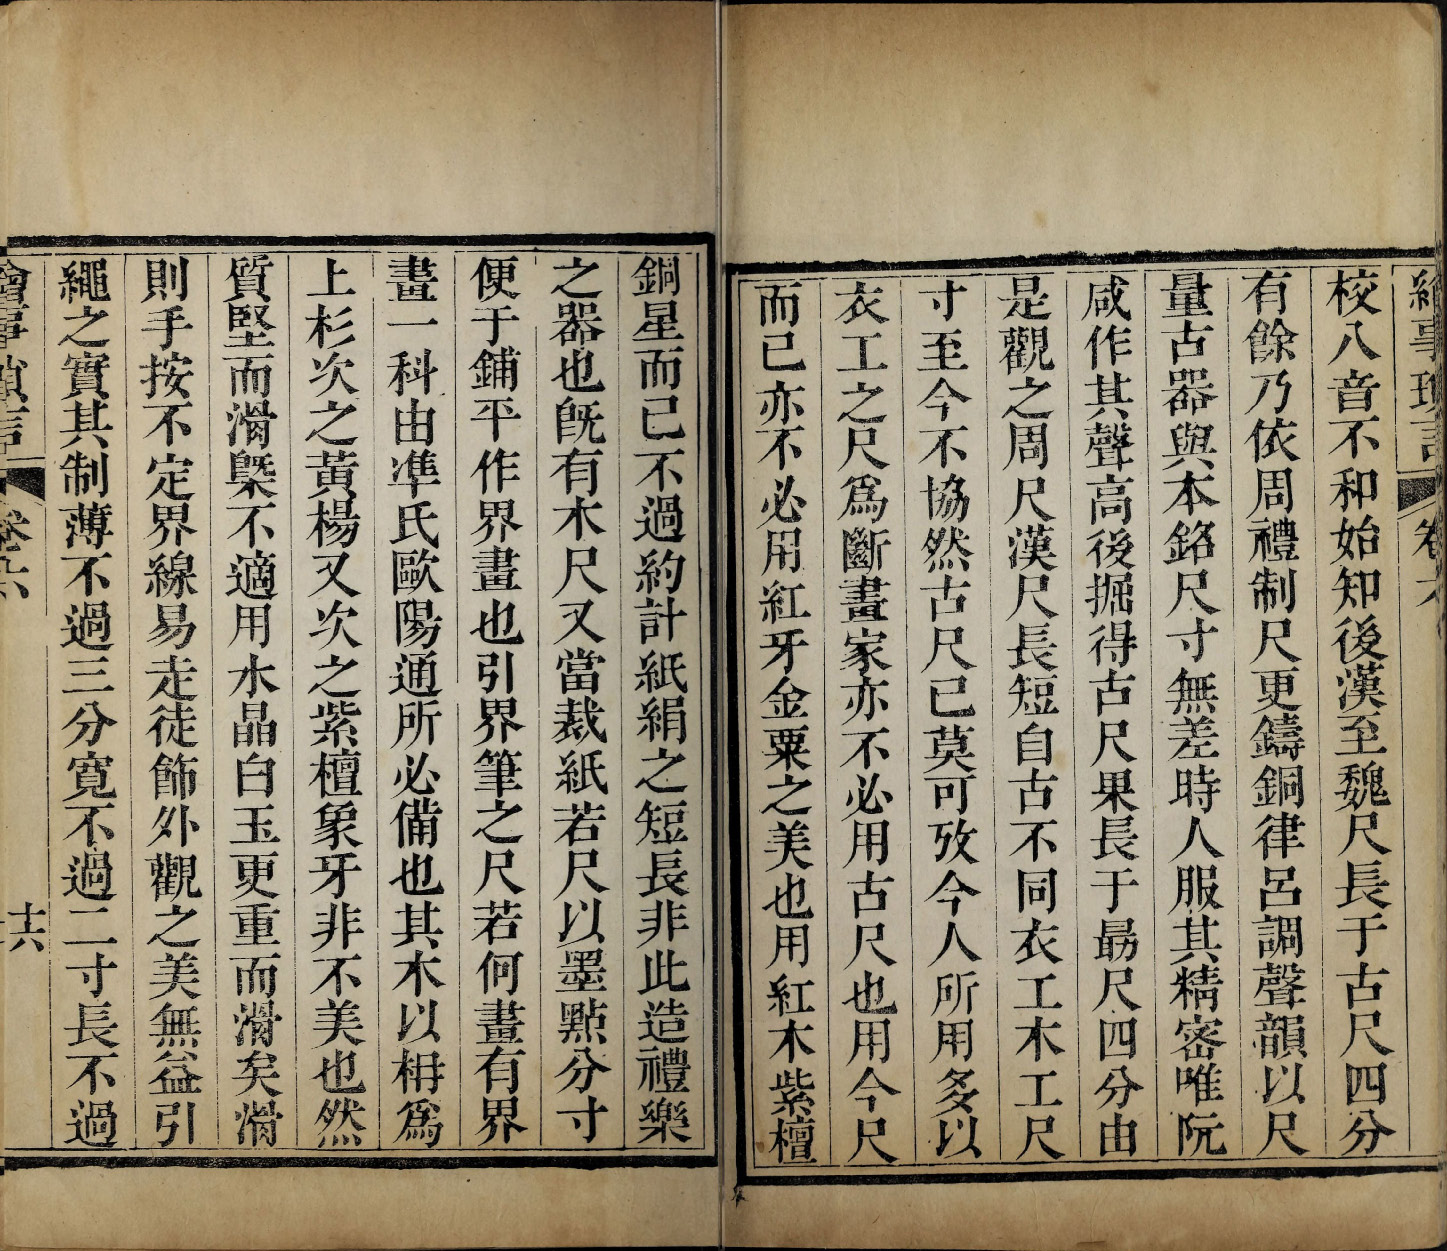 繪事瑣言 卷六
校八音不和始知後漢至魏尺長于古尺四分
有餘乃依周禮制尺更鑄銅律呂調聲韻以尺
量古器與本銘尺寸無差時人服其精密唯阮
咸作其聲高後掘得古尺果長于勗尺四分由
是觀之周尺漢尺長短自古不同衣工木工尺
寸至今不協然古尺已莫可攷今人所用多以
衣工之尺爲斷畫家亦不必用古尺也用今尺
而已亦不必用紅牙金粟之美也用紅木紫檀
銅星而已不過約計紙絹之短長非此造禮樂
之器也旣有木尺又當裁紙若尺以墨點分寸
便于鋪平作界畫也引界筆之尺若何畫有界
畫一科由凖氏歐陽通所必備也其木以枏爲
上杉次之黃楊又次之紫檀象牙非不美也然
質堅而滑槩不適用水晶白玉更重而滑矣滑
則手按不定界線易走徒飾外觀之美無益引
繩之實其制薄不過三分寬不過二寸長不過
繪事瑣言 卷六 十六